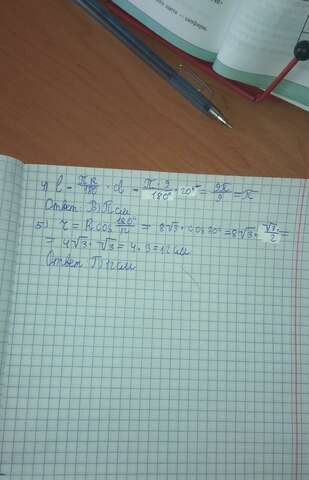 4) l = πR/180° · α = π · 9/180° · 20° = 9π/9 = π
Ответ: В) π см
5) r = R cos 180°/n = 8√3 · cos 30° = 8√3 · √3/2 =
= 4√3 · √3 = 4 · 3 = 12 см
Ответ Г) 12 см